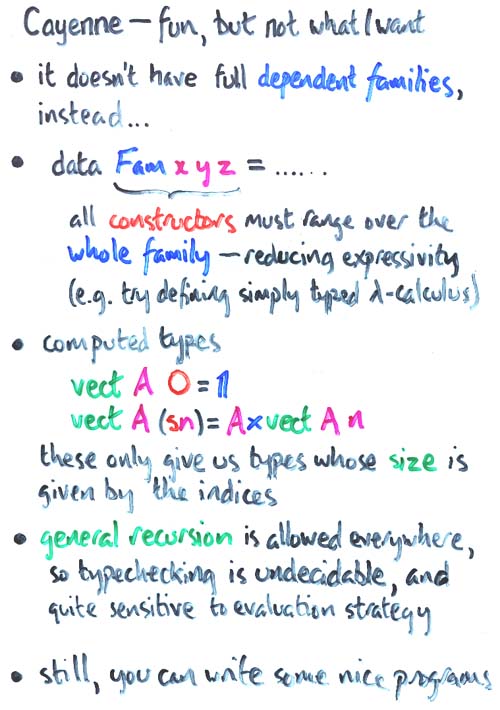 Cayenne – fun, but not what I want
• it doesn't have full dependent families,
instead...
• data Fam x y z = ......
all constructors must range over the
whole family – reducing expressivity
(e.g. try defining simply typed λ-calculus)
• computed types
vect A O = 1
vect A (sn) = A x vect A n
these only give us types whose size is
given by the indices
• general recursion is allowed everywhere,
so typechecking is undecidable, and
quite sensitive to evaluation strategy
• still, you can write some nice programs